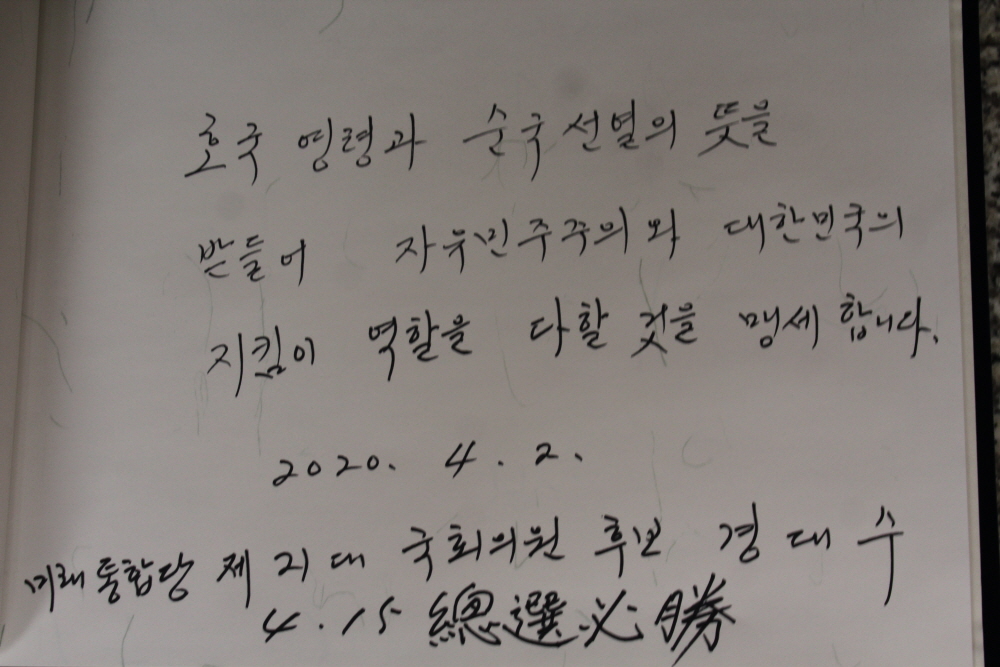 호국 영령과 순국선열의 뜻을
받들어 자유민주주의와 대한민국의
지킴이 역할을 다할 것을 맹세합니다.
2020. 4. 2.
미래통합당 제21대 국회의원 후보 경대수
4.15 總選必勝